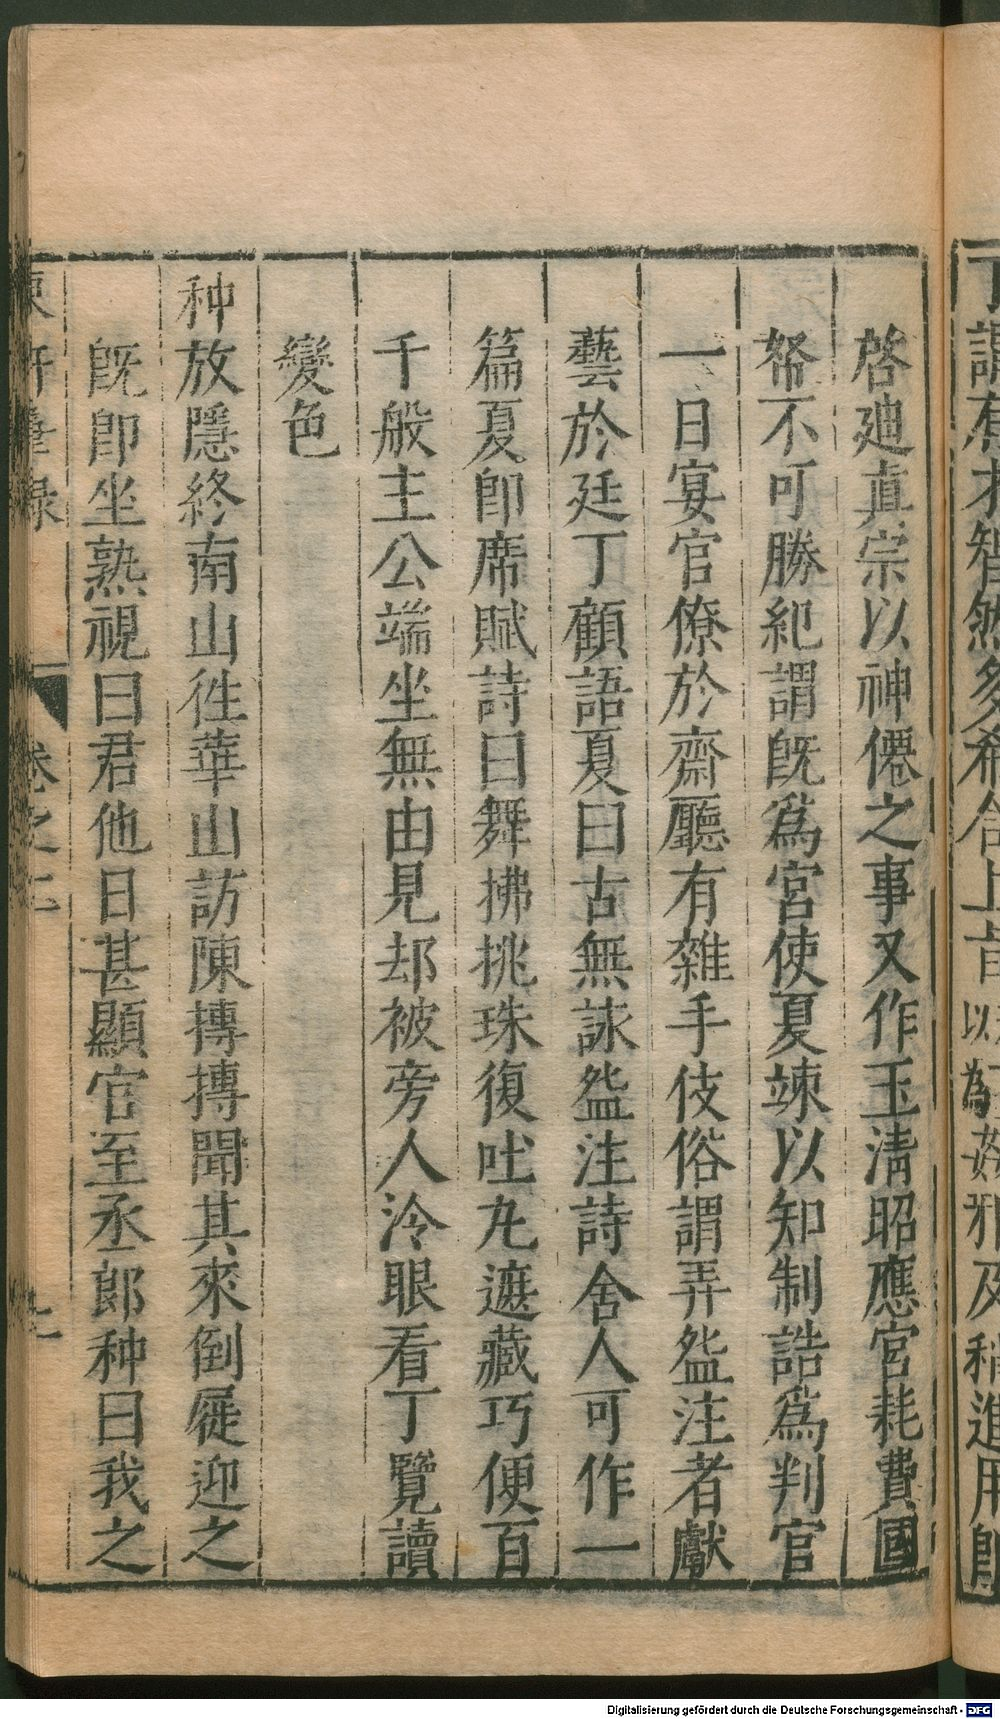 啓廸真宗以神僊之事又作玉清昭應宮耗費國
帑不可勝紀謂旣爲宮使夏竦以知制誥爲判官
一日宴官僚於齋廳有雜手伎俗謂弄盌注者獻
藝於廷丁顧語夏曰古無詠盌注詩舍人可作一
篇夏卽席賦詩曰舞拂挑珠復吐丸遮藏巧便百
千般主公端坐無由見却被旁人冷眼看丁覽讀
變色
种放隱終南山徃華山訪陳摶摶聞其來倒屣迎之
旣卽坐熟視曰君他日甚顯官至丞郎种曰我之
東軒筆録
卷之二
Digitalisierung gefördert durch die Deutsche Forschungsgemeinschaft - DFG